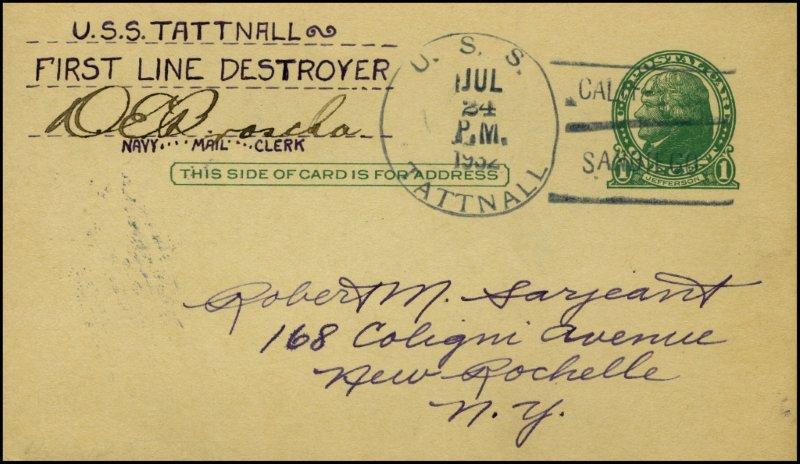 U.S.S. TATTNALL
FIRST LINE DESTROYER
NAVY....MAIL....CLERK
THIS SIDE OF CARD IS FOR ADDRESS
U. S. S.
JUL
24
P.M.
1932
TATTNALL
CALIF
SAN DIEGO
U·S·POSTAL CARD
1 JEFFERSON 1
Robert M. Sarjeant
168 Coligni Avenue
New Rochelle
N.Y.